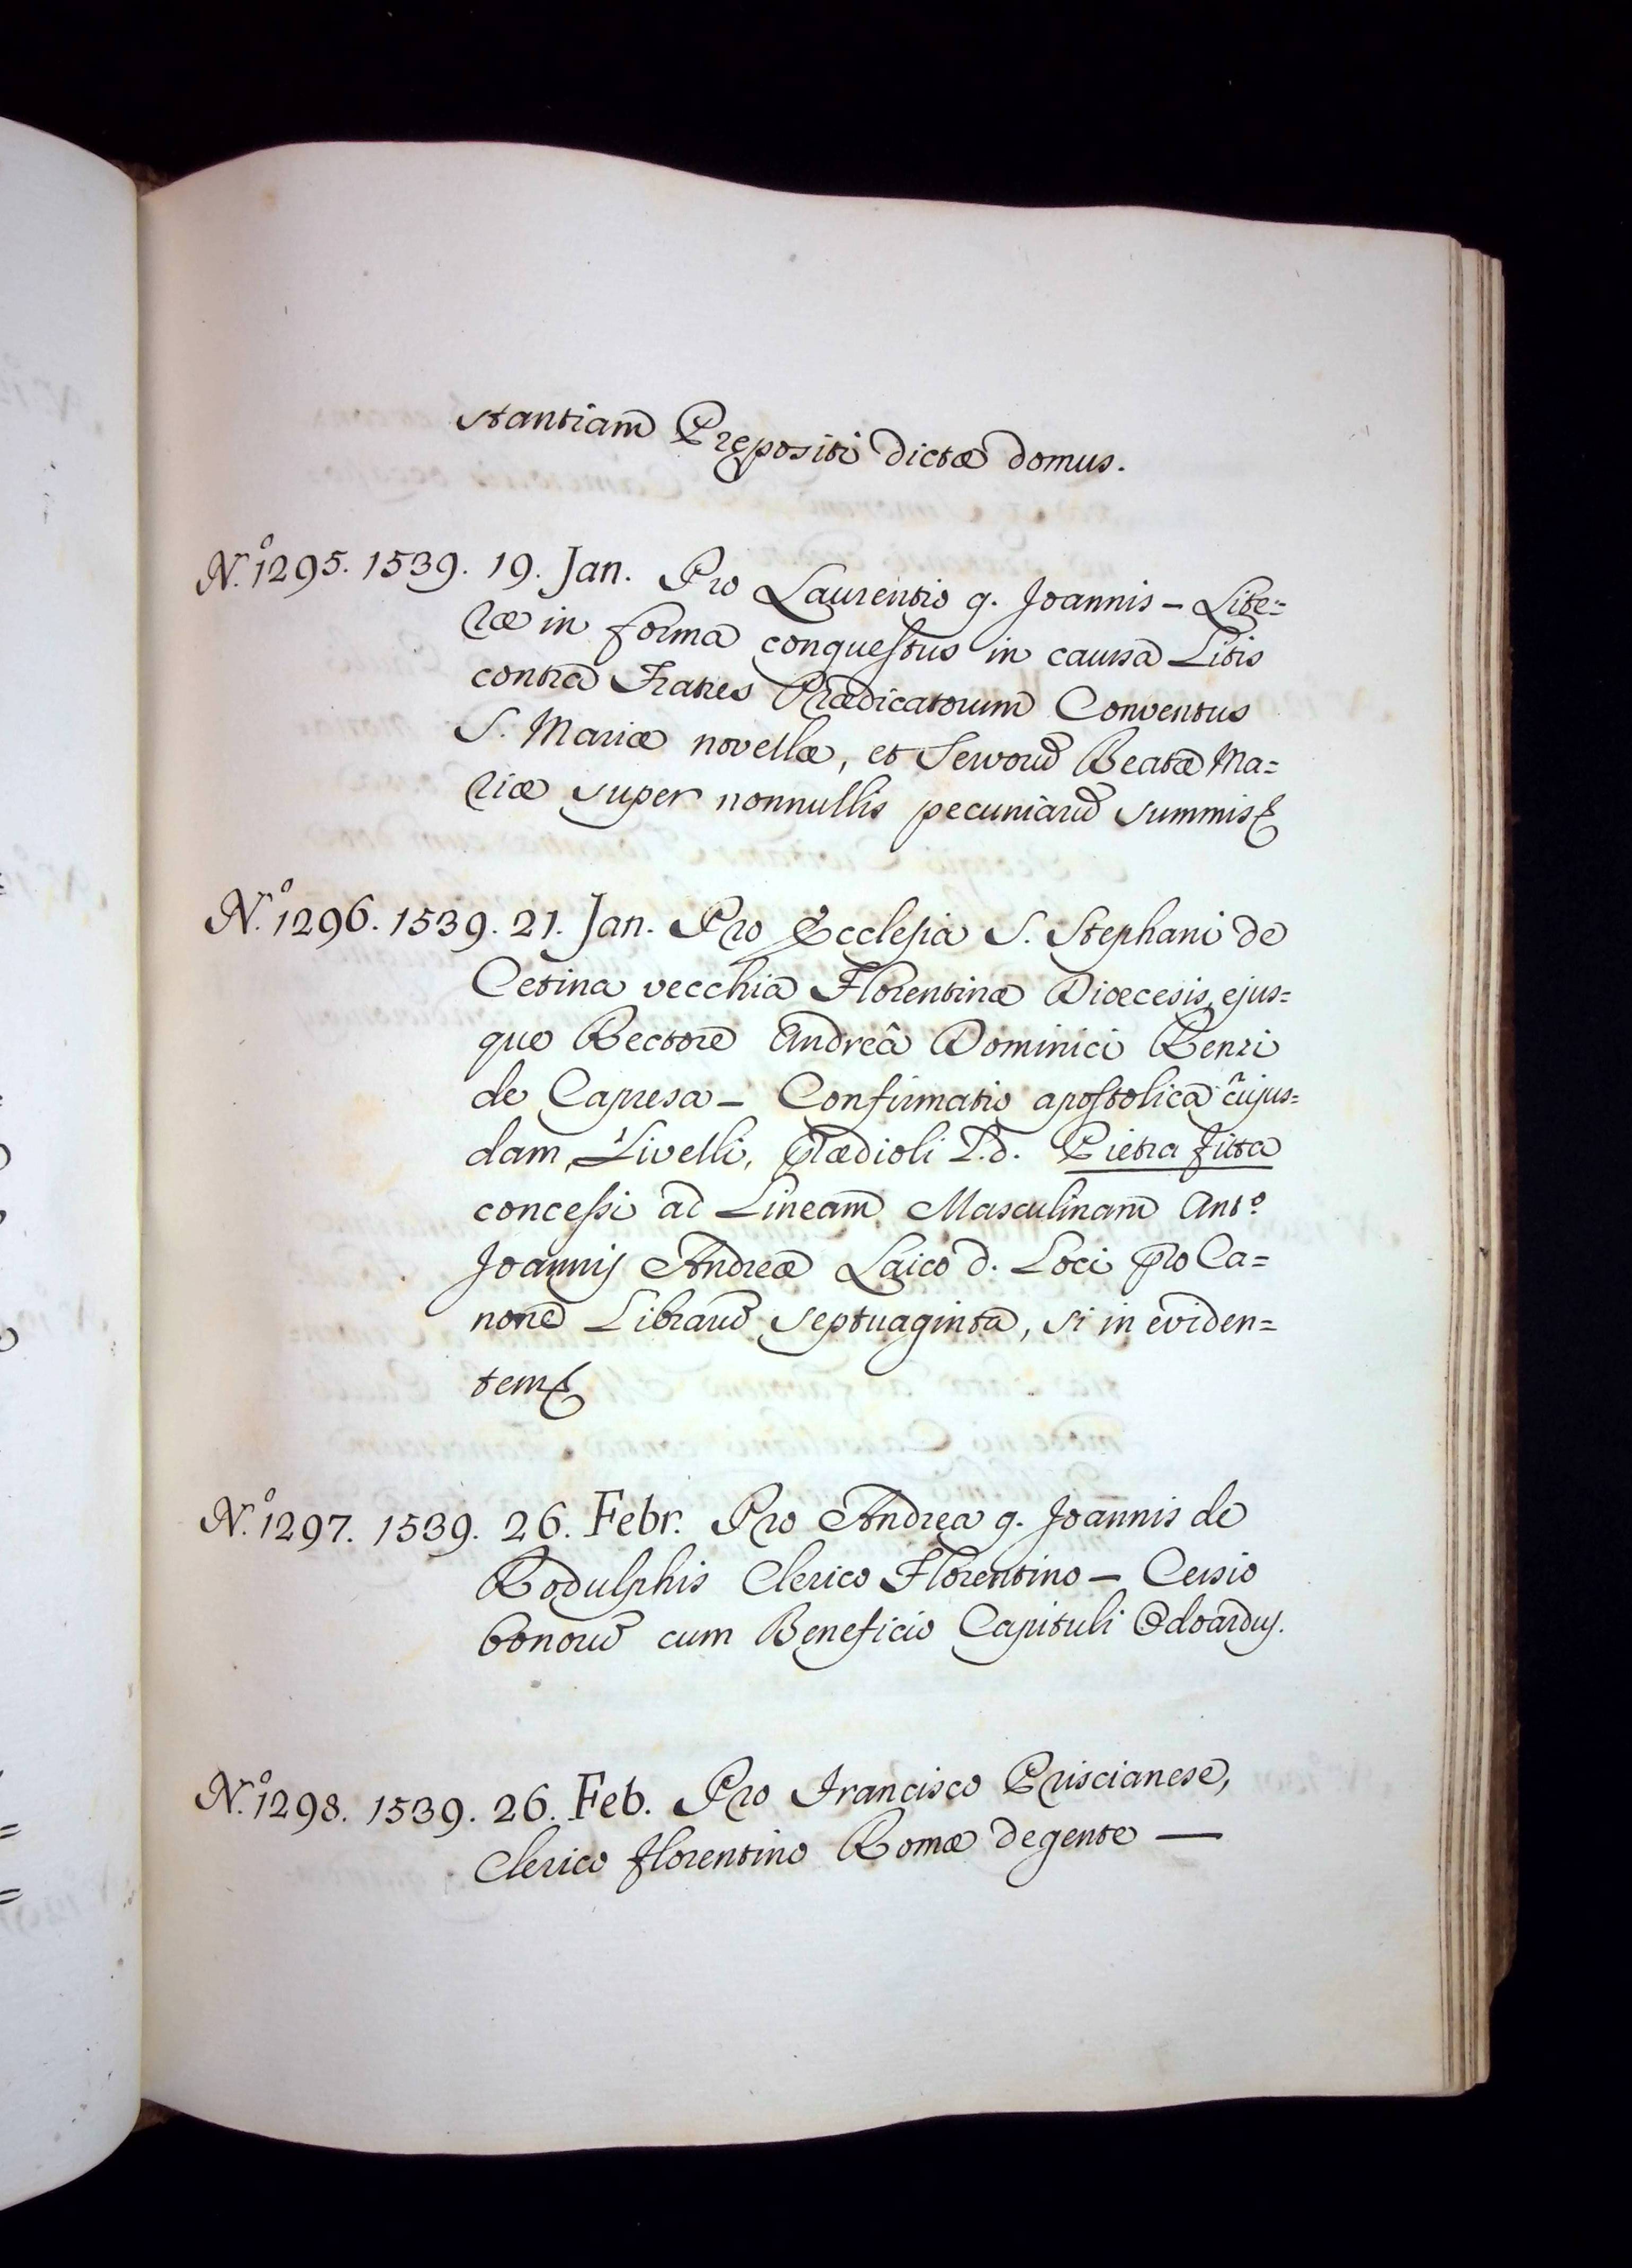 stantiam Prępositi dictæ domus.
N.º 1295. 1539. 19. Jan. Pro Laurentio q. Joannis – Lite=
ræ in forma conquestus in causa Litis
contra Fratres Prædicatorum Conventus
S. Mariæ novellæ, et Servorū Beatæ Ma=
riæ super nonnullis pecuniarū summis
N.º 1296. 1539. 21. Jan. Pro Ecclesia S. Stephani de
Cetina vecchia Florentinæ Diœcesis, ejus=
que Rectore Andreâ Dominici Renzi
de Capresa – Confirmatio apostolica cujus=
dam Livelli, Prædioli L.d. Pietra fitta
concessi ad Lineam Masculinam Ant.º
Joannis Andreæ Laico d. Loci pro Ca=
none Librarū septuaginta, si in eviden=
tem
N.º 1297. 1539. 26. Febr. Pro Andrea q. Joannis de
Rodulphis Clerico Florentino – Cessio
bonorū cum Beneficio Capituli Odoardus.
N.º 1298. 1539. 26. Feb. Pro Francisco Priscianese,
Clerico florentino Romæ degente —